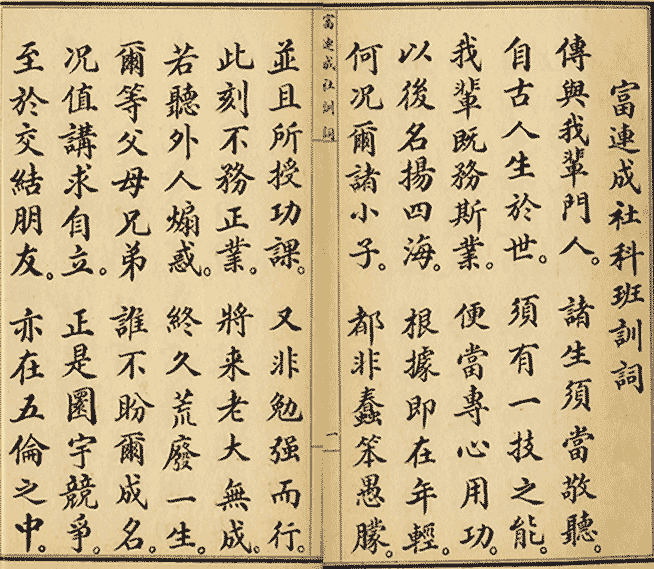 富連成社科班訓詞
傳與我輩門人。諸生須當敬聽。
自古人生於世。須有一技之能。
我輩既務斯業。便當專心用功。
以後名揚四海。根據即在年輕。
何况爾諸小子。都非蠢笨愚朦。
富連成社訓詞
並且所授功課。又非勉强而行。
此刻不務正業。將来老大無成。
若聽外人煽惑。終久荒廢一生。
爾等父母兄弟。誰不盼爾成名。
况值講求自立。正是圜宇競爭。
至於交結朋友。亦在五倫之中。